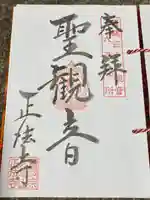 奉拝
聖観音
正法寺